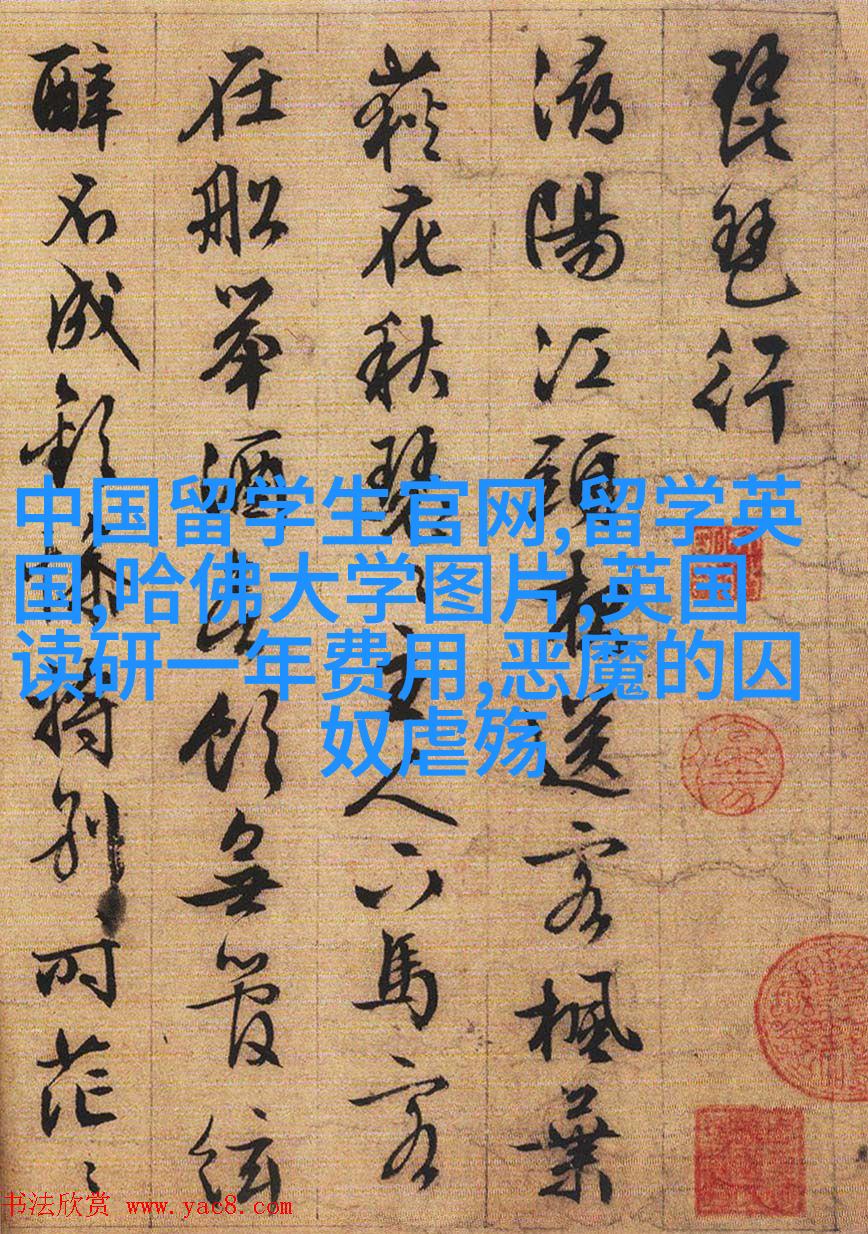 琵琶行
潯陽江頭夜送客楓葉
荻花秋瑟〻主人下馬客
在船舉酒欲飲無管絃
醉不成歡慘將別〻时茫〻
中国留学生官网,留学英
国,哈佛大学图片,英国
读研一年费用,恶魔的囚
奴虐殇
书法欣赏 www.yac8.com